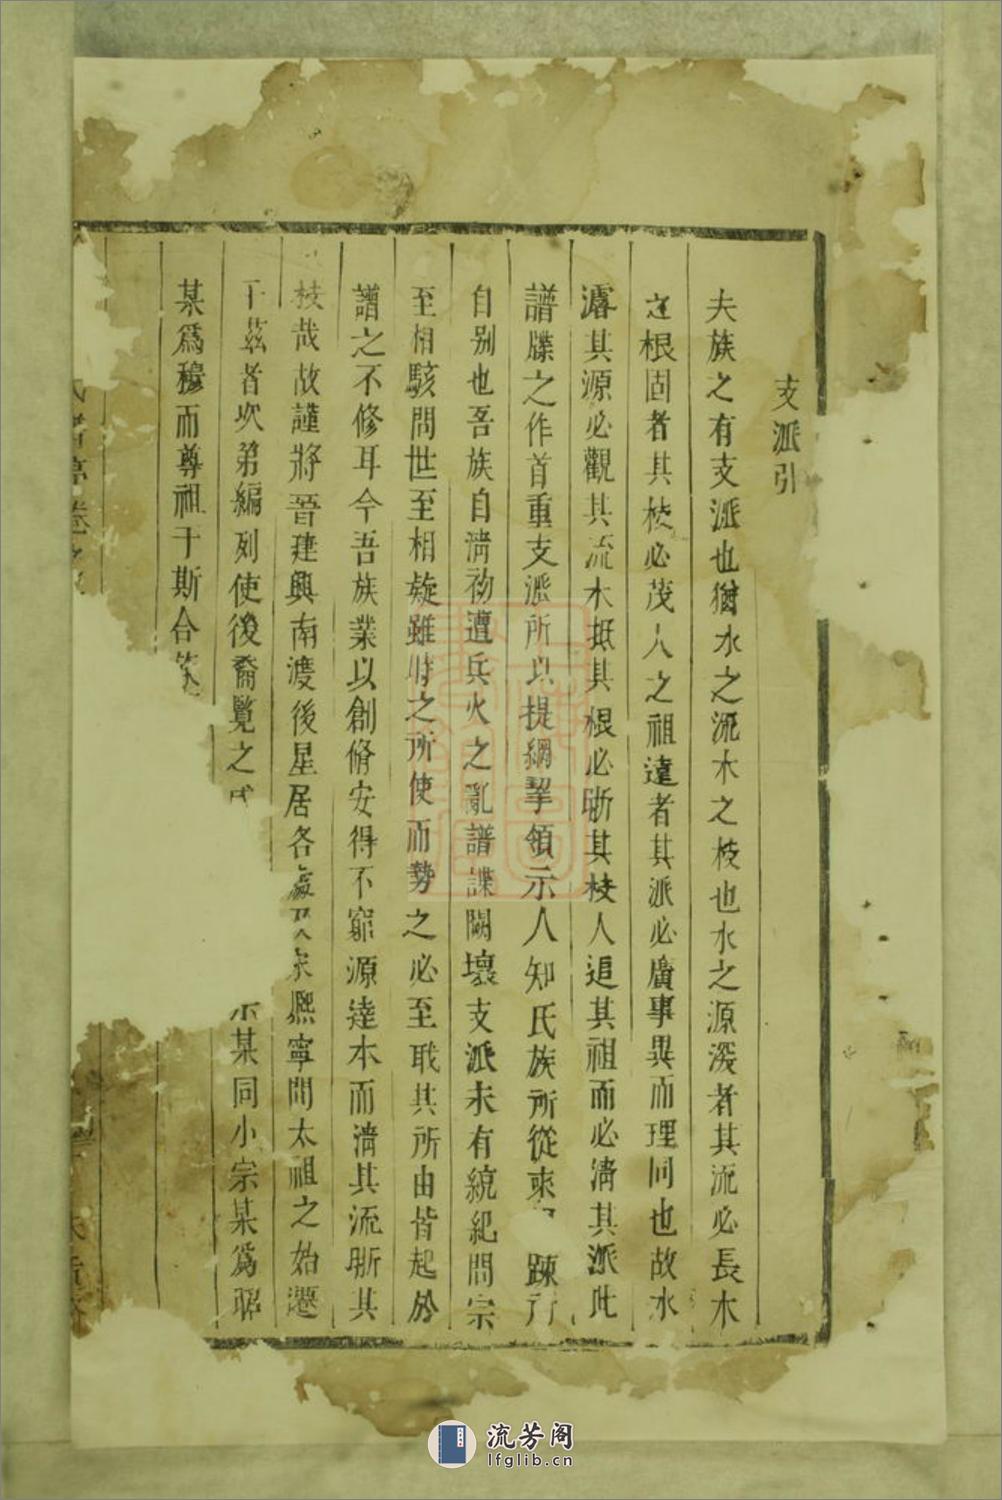 支派引
夫族之有支派也猶水之流木之枝也水之源深者其流必長木
之根固者其枝必茂人之祖遠者其派必廣事異而理同也故水
濬其源必觀其流木抵其根必晰其枝人追其祖而必清其派此
譜牒之作首重支派所以提綱挈領示人知氏族所從來 踈
自别也吾族自清初遭兵火之亂譜諜闕壞支派未有統紀問宗
至相駭問世至相疑雖时之所使而勢之必至耴其所由皆起於
譜之不修耳今吾族業以創脩安得不窮源達本而清其流晰其
枝哉故謹將晉建興南渡後星居各處 宋熈寧間太祖之始遷
于茲者次弟編列使後裔覽之 某同小宗某爲昭
某爲穆而尊祖于斯合
流芳阁
lfglib.cn